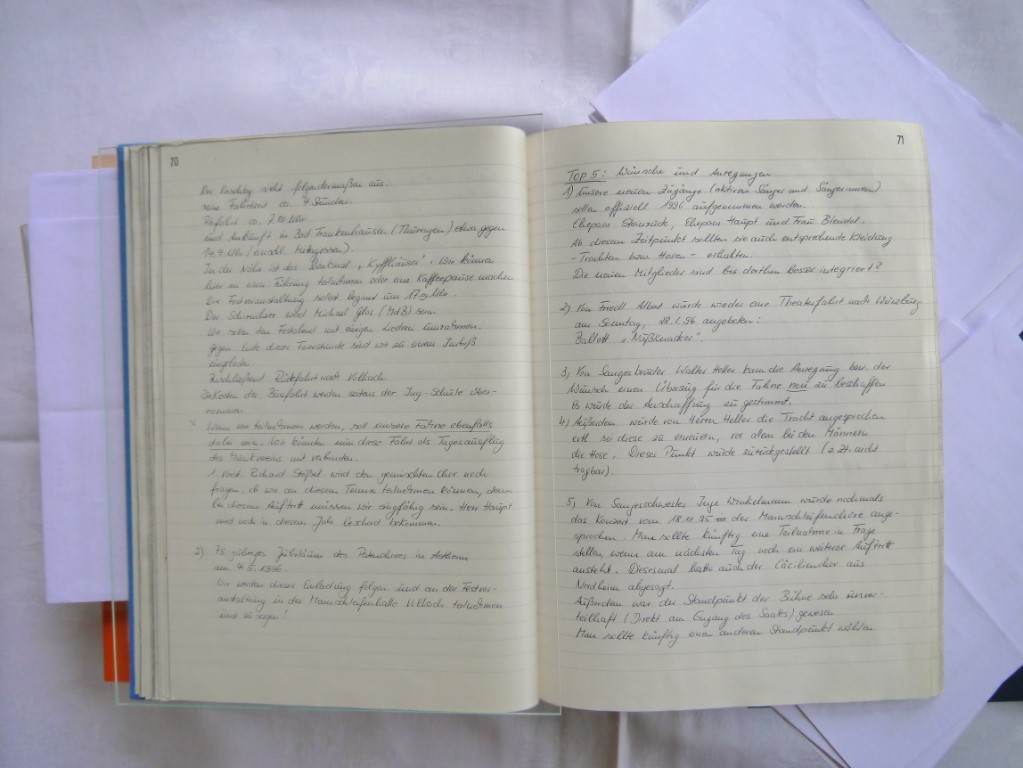 70
Der Vorschlag sieht folgendermaßen aus:
reine Fahrtzeit ca. 4 Stunden.
Abfahrt ca. 7.00 Uhr
und Ankunft in Bad Frankenhausen (Thüringen) etwa gegen
Uhr (anschl. Mittagessen).
In der Nähe ist das Denkmal „Kyffhäuser". Wir können
hier an einer Führung teilnehmen oder eine Kaffeepause machen.
Die Festveranstaltung selbst beginnt um 17.00 Uhr.
Der Schirmherr wird Michael Glos (MdB) sein.
Wir sollen den Festabend mit einigen Liedern umrahmen.
gegen Ende dieser Feierstunde sind wir zu einem Imbiß
eingeladen.
Anschließend Rückfahrt nach Volkach.
Die Kosten der Busfahrt werden seitens der Jug-Schule über-
nommen.
Wenn wir teilnehmen werden, soll unsere Fahne ebenfalls
dabei sein. Wir könnten nun diese Fahrt als Tagesausflug
des Musikvereins mit verbinden.
1. Vorst. Richard Stößel wird den gemischten Chor noch
fragen, ob wir an diesem Termin teilnehmen können, denn
bei diesem Auftritt müssen wir singfähig sein. Herr Haupt
wird noch in diesem Jahr Bescheid bekommen.
2) 75 jähriges Jubiläum des Patenchores in Astheim
am 4.5.1996.
Wir werden dieser Einladung folgen und an der Festver-
anstaltung in der Mainschleifenhalle Volkach teilnehmen
und singen!
71
Top 5: Wünsche und Anregungen
1) Unsere neuen Zugänge (aktiven Sänger und Sängerinnen)
sollen offiziell 1996 aufgenommen werden.
Ehepaar Haupt und Frau Blendel.
Ab diesem Zeitpunkt sollten sie auch entsprechende Kleidung
- Trachten bzw. Hosen - erhalten.
Die neuen Mitglieder sind bis dorthin besser integriert?
2) Von Friedl Albert wurde wieder eine Theaterfahrt nach Würzburg
am Sonntag, 28.1.96 angeboten:
Ballett „Nußknacker".
3) Von Sangesbruder Walter Heller kam die Anregung bzw. der
Wunsch einen Überzug für die Fahne neu zu beschaffen
Es wurde der Anschaffung zu gestimmt.
4) Außerdem wurde von Herrn Heller die Tracht angesprochen
evtl. so diese zu erneuern, vor allem bei den Männern
die Hose. Dieser Punkt wurde zurückgestellt (z.Zt. nicht
tragbar).
5) Von Sangesschwester Inge Winkelmann wurde nochmals
das Konzert vom 18.11.95 der Mainschleifenchöre ange-
sprochen. Man sollte künftig eine Teilnahme in Frage
stellen, wenn am nächsten Tag noch ein weiterer Auftritt
ansteht. Diesesmal hatte auch der Cäcilienchor aus
Nordheim abgesagt.
Außerdem war der Standpunkt der Bühne sehr unvor-
teilhaft (Direkt am Eingang des Saales) gewesen.
Man sollte künftig einen anderen Standpunkt wählen.